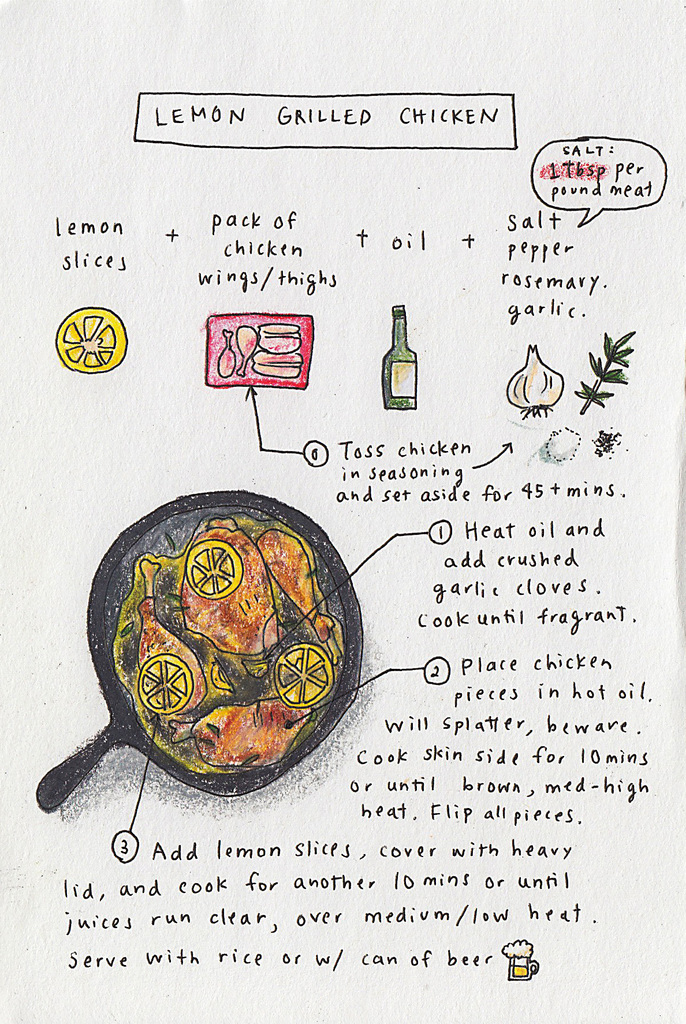 LEMON GRILLED CHICKEN
SALT:
1 Tbsp per
pound meat
lemon
slices
+
pack of
chicken
wings/thighs
+
oil
+
salt
pepper
rosemary.
garlic.
0 Toss chicken
in seasoning
and set aside for 45+ mins.
1 Heat oil and
add crushed
garlic cloves.
Cook until fragrant.
2 Place chicken
pieces in hot oil.
Will splatter, beware.
Cook skin side for 10 mins
or until brown, med-high
heat. Flip all pieces.
3 Add lemon slices, cover with heavy
lid, and cook for another 10 mins or until
juices run clear, over medium/low heat.
Serve with rice or w/ can of beer